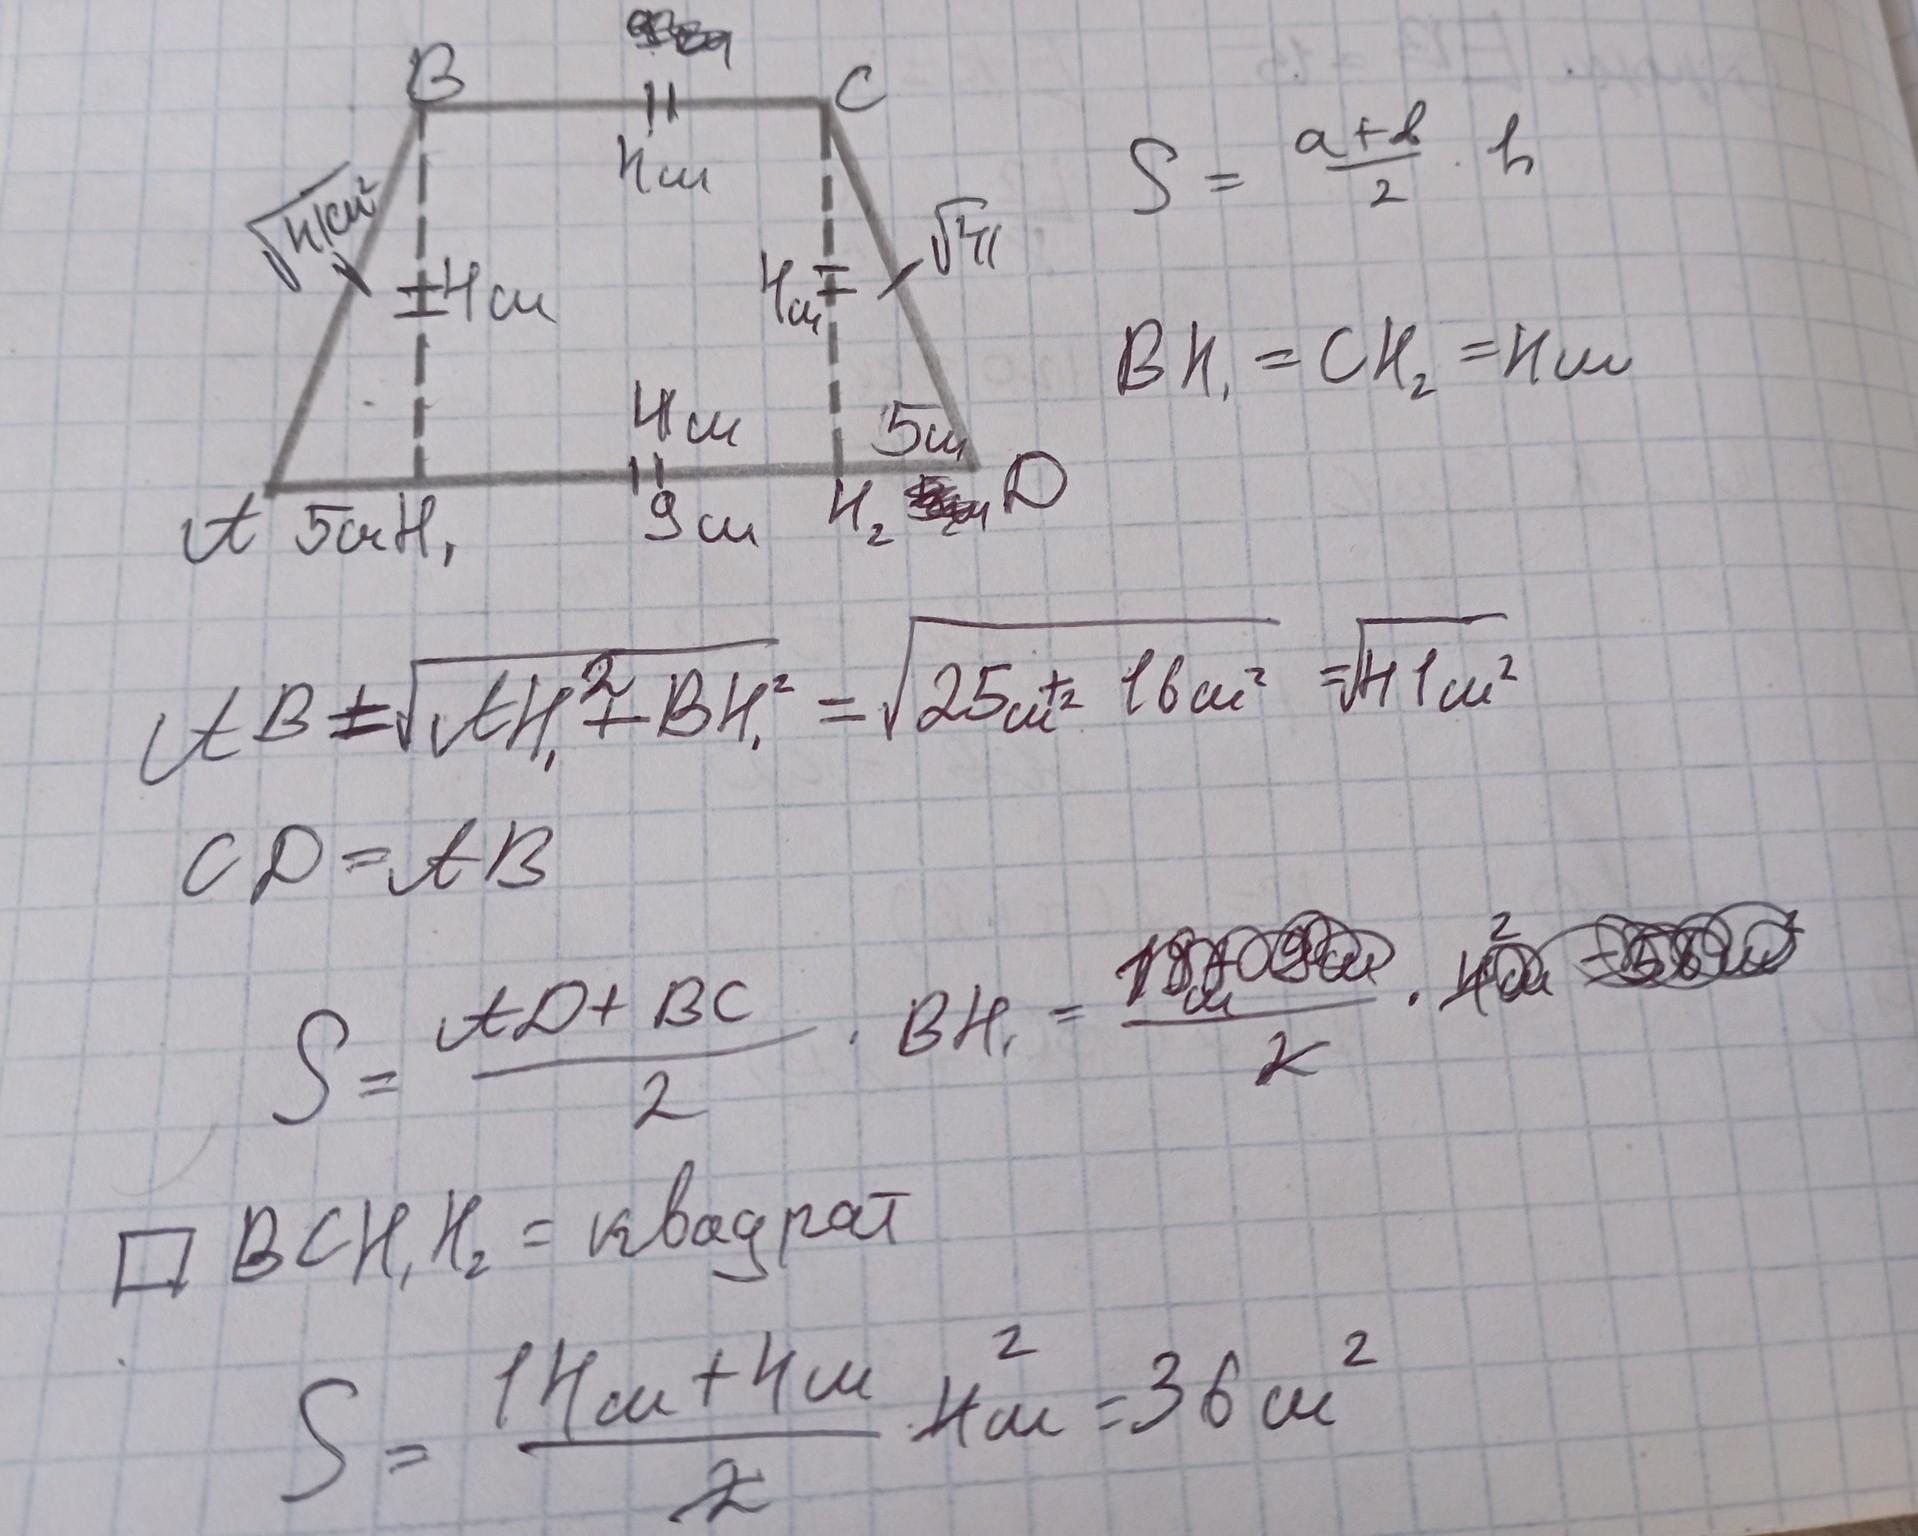 B C
4см
√41см² 4см 4см √41
4см 5см
A 5см H₁ 9см H₂ D
S = (a+b)/2 · h
BH₁ = CH₂ = 4см
AB = √AH₁² + BH₁² = √25см² + 16см² = √41см²
CD = AB
S = (AD + BC)/2 · BH₁ =
□ BCH₁H₂ = квадрат
S = (14см + 4см)/2 · 4см = 36 см²